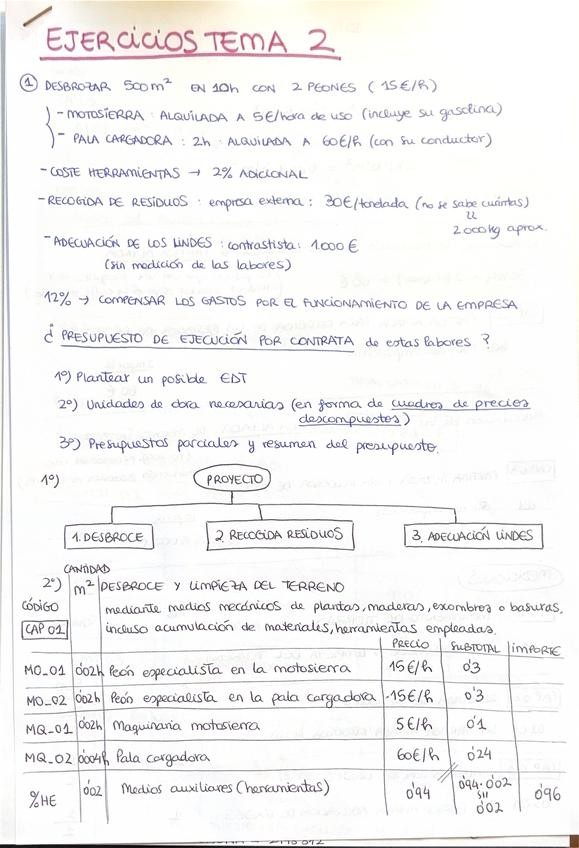 EJERCICIOS TEMA 2
① DESBROZAR 500m² EN 10h CON 2 PEONES (15€/h)
- MOTOSIERRA: ALQUILADA A 5€/hora de uso (incluye su gasolina)
- PALA CARGADORA: 2h ALQUILADA A 60€/h (con su conductor)
- COSTE HERRAMIENTAS → 2% ADICIONAL
- RECOGIDA DE RESIDUOS: empresa externa: 30€/tonelada (no se sabe cuántas)
2000kg aprox.
- ADECUACIÓN DE LOS LINDES: contrastista: 1.000€
(sin medición de las labores)
12% → COMPENSAR LOS GASTOS POR EL FUNCIONAMIENTO DE LA EMPRESA
¿ PRESUPUESTO DE EJECUCIÓN POR CONTRATA de estas labores ?
1º) Plantear un posible EDT
2º) Unidades de obra necesarias (en forma de cuadros de precios
descompuestos)
3º) Presupuestos parciales y resumen del presupuesto.
1º) PROYECTO
1. DESBROCE 2. RECOGIDA RESIDUOS 3. ADECUACIÓN LINDES
CANTIDAD
2º) m² DESBROCE Y LIMPIEZA DEL TERRENO
CÓDIGO mediante medios mecánicos de plantas, maderas, exombros o basuras,
CAP 01 incluso acumulación de materiales, herramientas empleadas.
PRECIO SUBTOTAL IMPORTE
MO_01 0'02h Peón especialista en la motosierra 15€/h 0'3
MO_02 0'02h Peón especialista en la pala cargadora 15€/h 0'3
MQ_01 0'02h Maquinaria motosierra 5€/h 0'1
MQ_02 0'004h Pala cargadora 60€/h 0'24
%HE 0'02 Medios auxiliares (herramientas) 0'94 0'94·0'02 0'96
0'02